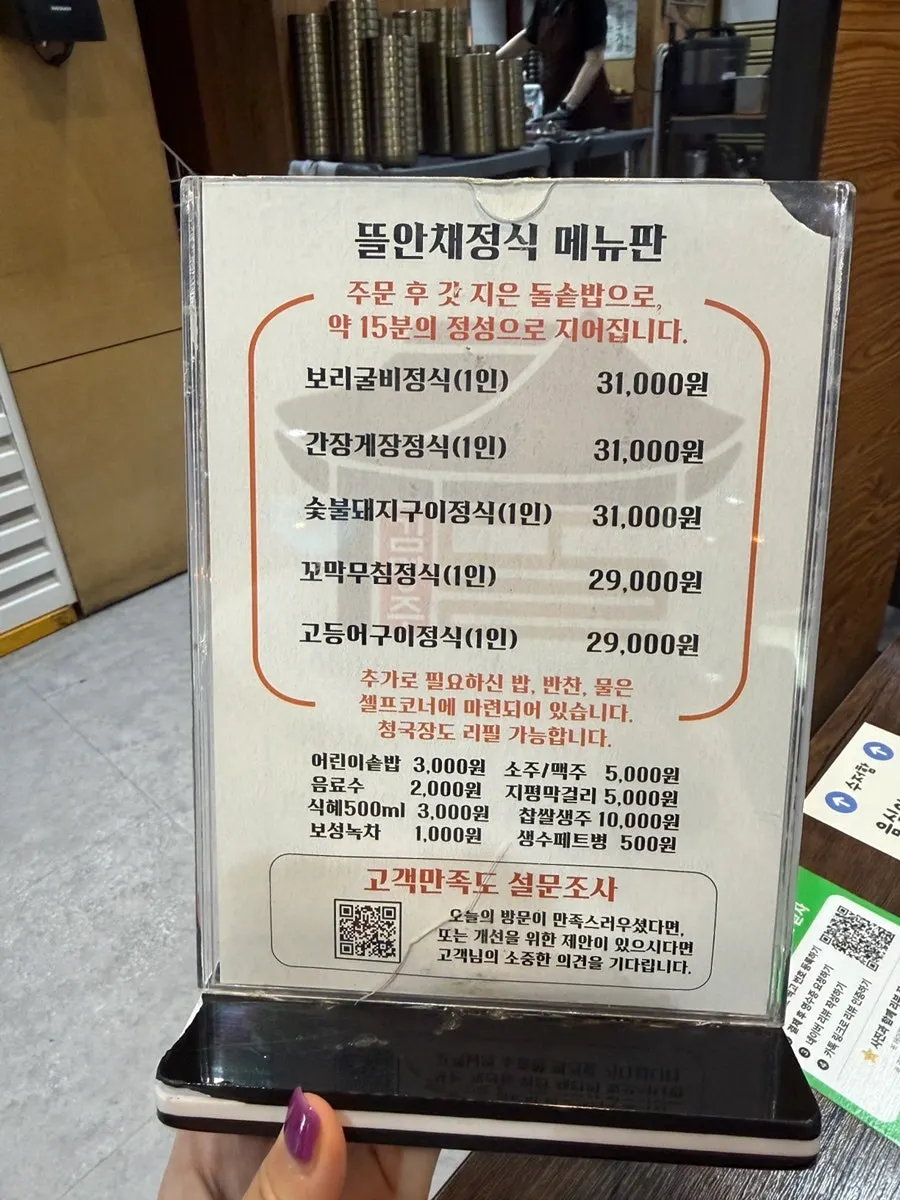 뜰안채정식 메뉴판
주문 후 갓 지은 돌솥밥으로,
약 15분의 정성으로 지어집니다.
보리굴비정식(1인) 31,000원
간장게장정식(1인) 31,000원
숯불돼지구이정식(1인) 31,000원
꼬막무침정식(1인) 29,000원
고등어구이정식(1인) 29,000원
추가로 필요하신 밥, 반찬, 물은
셀프코너에 마련되어 있습니다.
청국장도 리필 가능합니다.
어린이솥밥 3,000원 소주/맥주 5,000원
음료수 2,000원 지평막걸리 5,000원
식혜500ml 3,000원 찹쌀생주 10,000원
보성녹차 1,000원 생수페트병 500원
고객만족도 설문조사
오늘의 방문이 만족스러우셨다면,
또는 개선을 위한 제안이 있으시다면
고객님의 소중한 의견을 기다립니다.
수저함